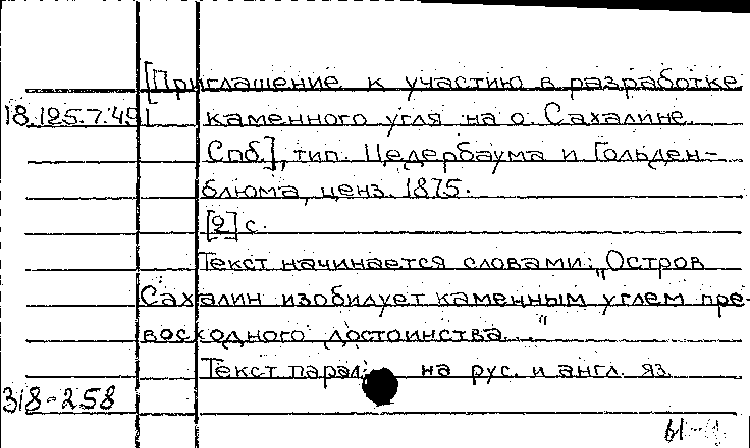 [Приглашение к участию в разработке
18.125.7.49 каменного угля на о. Сахалине.
Спб.], тип. Цедербаума и Гольден-
блюма, ценз. 1875.
[2] с.
Текст начинается словами: „Остров
Сахалин изобилует каменным углем пре-
восходного достоинства..."
Текст парал. на рус. и англ. яз.
318-258